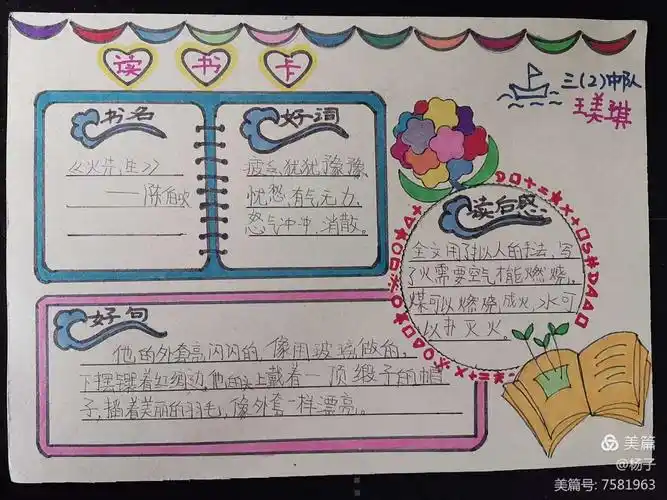 读书卡
三(2)中队
王美琪
书名
《火先生》
——陈伯吹
好词
疲乏、犹犹豫豫、
忧愁、有气无力、
怒气冲冲、消散。
读后感
全文用了拟人的手法,写
了火需要空气才能燃烧,
煤可以燃烧,成火,水可
以扑灭火。
好句
他的外套亮闪闪的,像用玻璃做的,
下摆镶着红绸边,他的头上戴着一顶缎子的帽
子,插着美丽的羽毛,像外套一样漂亮。
美篇
@杨子
美篇号: 7581963